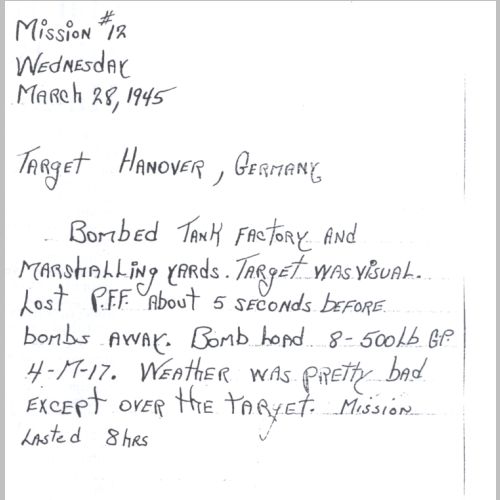 Mission #12
Wednesday
March 28, 1945
Target Hanover, Germany
Bombed Tank Factory and
Marshalling yards. Target was visual.
Lost P.F.F. about 5 seconds before
bombs away. Bomb load 8-500Lb GP.
4-M-17. Weather was pretty bad
except over the target. Mission
Lasted 8hrs